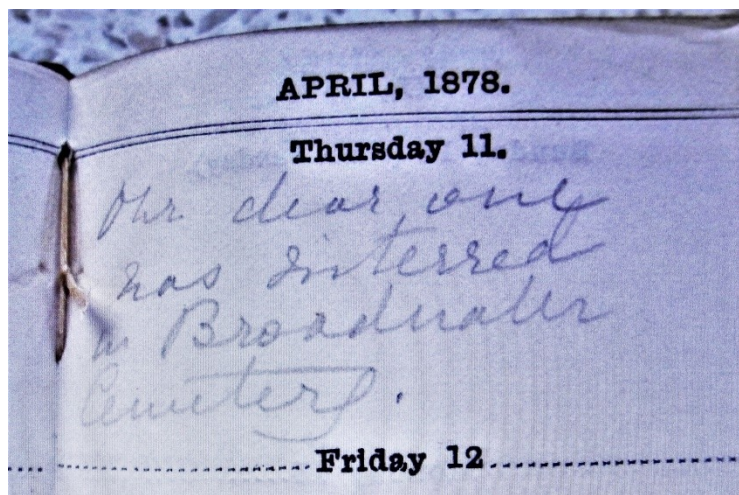 APRIL, 1878.
Thursday 11.
Our dear one
was interred
in Broadwater
Cemetery.
Friday 12